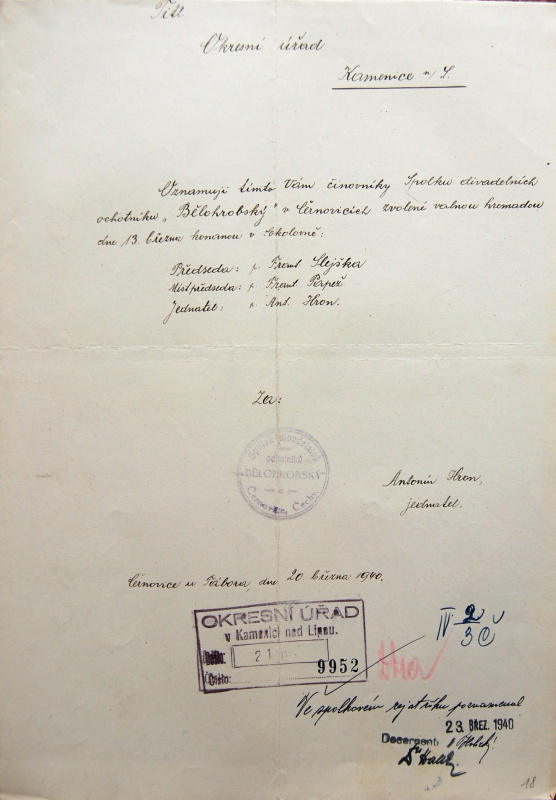 Titl.
Okresní úřad
Kamenice n/L.
Oznamuji tímto Vám činovníky Spolku divadelních
ochotníku „Bělohrobský" v Černovicích zvolené valnou hromadou
dne 13. března konanou v Sokolovně:
Předseda: p. Frant. Slejška
Místpředseda: p. Frant
Jednatel: p. Ant. Hron.
Za:
Spolek divadelních
ochotníků
BĚLOHROBSKÝ
Černovice, Čechy.
Antonín Hron,
jednatel.
Černovice u Tábora, dne 20. března 1940.
OKRESNÍ ÚŘAD
v Kamenici nad Lipou.
Došlo: 21
Číslo: 9952
IV 2
Ve spolkovém rejstříku poznamenal
23. BŘEZ. 1940
Decernent:
18